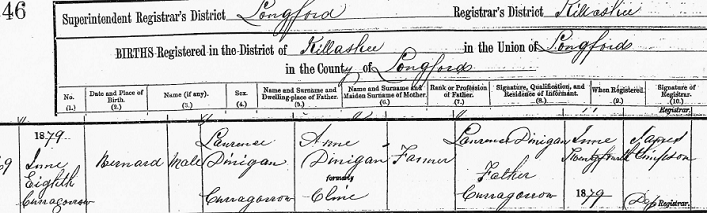 46
Superintendent Registrar's District Longford Registrar's District Killashee
BIRTHS Registered in the District of Killashee in the Union of Longford
in the County of Longford
No. Date and Place of Birth. Name (if any). Sex. Name and Surname and Dwelling-place of Father. Name and Surname and Maiden Surname of Mother. Rank or Profession of Father. Signature, Qualification, and Residence of Informant. When Registered. Signature of Registrar.
(1.) (2.) (3.) (4.) (5.) (6.) (7.) (8.) (9.) (10.)
Registrar.
1879 Laurence Anne Laurence Dinigan June James
9 June Bernard Male Dinigan Dinigan Farmer Twentyfourth Simpson
Eighth formerly Father
Curragorrow Curragorrow Cline Curragorrow 1879 Dep Registrar.